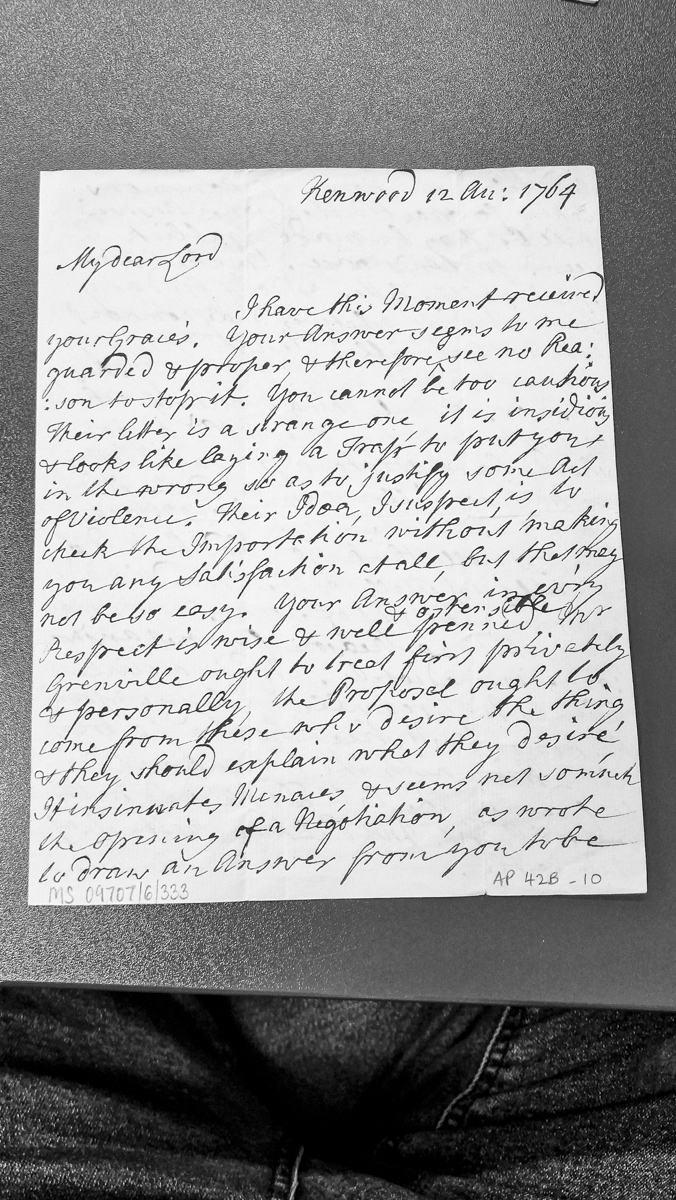 Kenwood 12 Au: 1764
My dear Lord
I have this Moment received
your Grace's. Your Answer seems to me
guarded & proper, & therefore, see no Rea:
:son to stop it. You cannot be too cautious
Their letter is a strange one it is insidious
& looks like laying a Trap to put you
in the wrong so as to justify some Act
of Violence. Their Idea, I suspect, is to
check the Importation without making
you any Satisfaction at all, but that may
not be so easy. Your Answer in every
& ostensible
Respect is wise & well penned Mr
Grenville ought to treat first privately
& personally, the Proposal ought to
come from those who desire the thing
& they should explain what they desire
It insinuates Menaces & seems not so much
the opening of a Negotiation, as wrote
to draw an Answer from you to be
MS 09707/6/333
AP 42B - 10